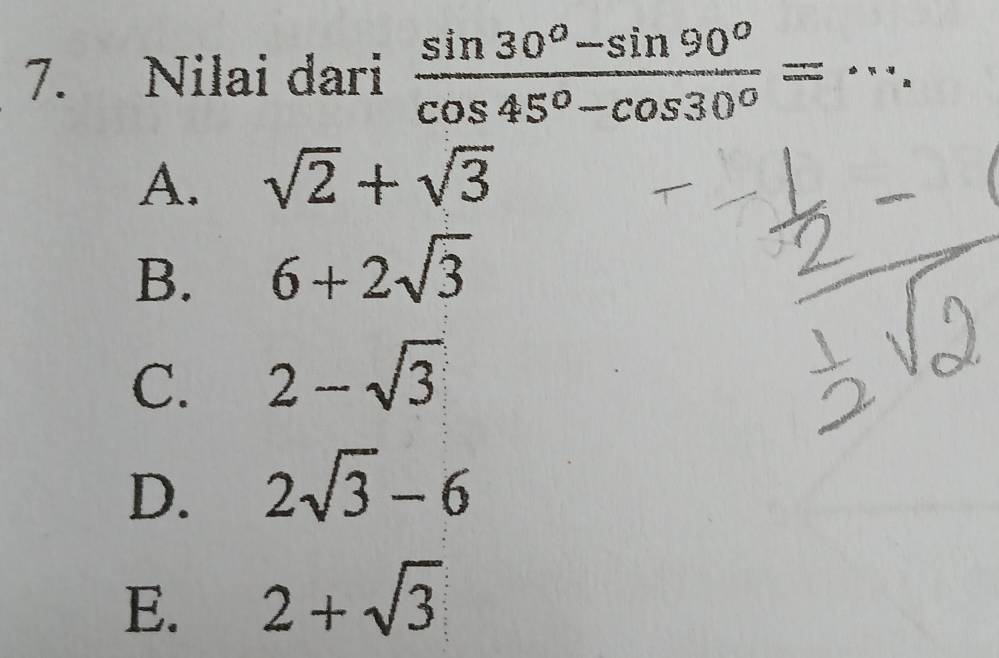 7. Nilai dari \frac{sin 30° − sin 90°}{cos 45° − cos 30°} = ....
A. √2 + √3
B. 6 + 2√3
C. 2 − √3
D. 2√3 − 6
E. 2 + √3
1/2 −
1/2 √2